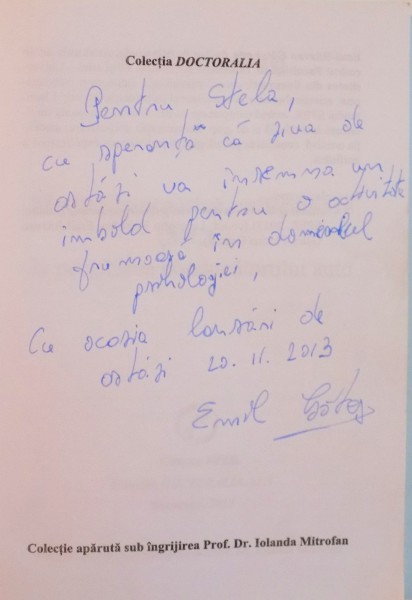 Colecția DOCTORALIA
Pentru Stela,
cu speranța că ziua de
astăzi va însemna un
imbold pentru o activitate
frumoasă în domeniul
psihologiei,
Cu ocazia lansări de
astăzi 20.11.2013
Emil
Colecție apărută sub îngrijirea Prof. Dr. Iolanda Mitrofan